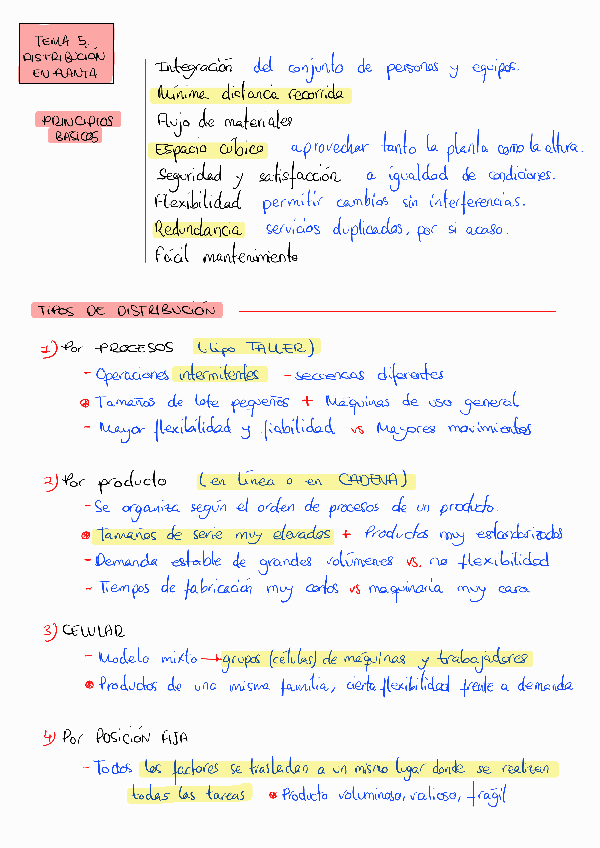 TEMA 5.
DISTRIBUCIÓN
EN PLANTA
PRINCIPIOS
BÁSICOS
Integración del conjunto de personas y equipos.
Mínima distancia recorrida
Flujo de materiales
Espacio cúbico aprovechar tanto la planta como la altura.
Seguridad y satisfacción a igualdad de condiciones.
Flexibilidad permitir cambios sin interferencias.
Redundancia servicios duplicados, por si acaso.
Fácil mantenimiento
TIPOS DE DISTRIBUCIÓN
1) Por PROCESOS (tipo TALLER)
- Operaciones intermitentes - secuencias diferentes
• Tamaños de lote pequeños + Máquinas de uso general
- Mayor flexibilidad y fiabilidad vs Mayores movimientos
2) Por producto (en línea o en CADENA)
- Se organiza según el orden de procesos de un producto.
• Tamaños de serie muy elevados + Productos muy estandarizados
- Demanda estable de grandes volúmenes vs. no flexibilidad
- Tiempos de fabricación muy cortos vs maquinaria muy cara
3) CELULAR
- Modelo mixto → grupos (células) de máquinas y trabajadores
• Productos de una misma familia, cierta flexibilidad frente a demanda
4) Por POSICIÓN FIJA
- Todos los factores se trasladan a un mismo lugar donde se realizan
todas las tareas • Producto voluminoso, valioso, frágil